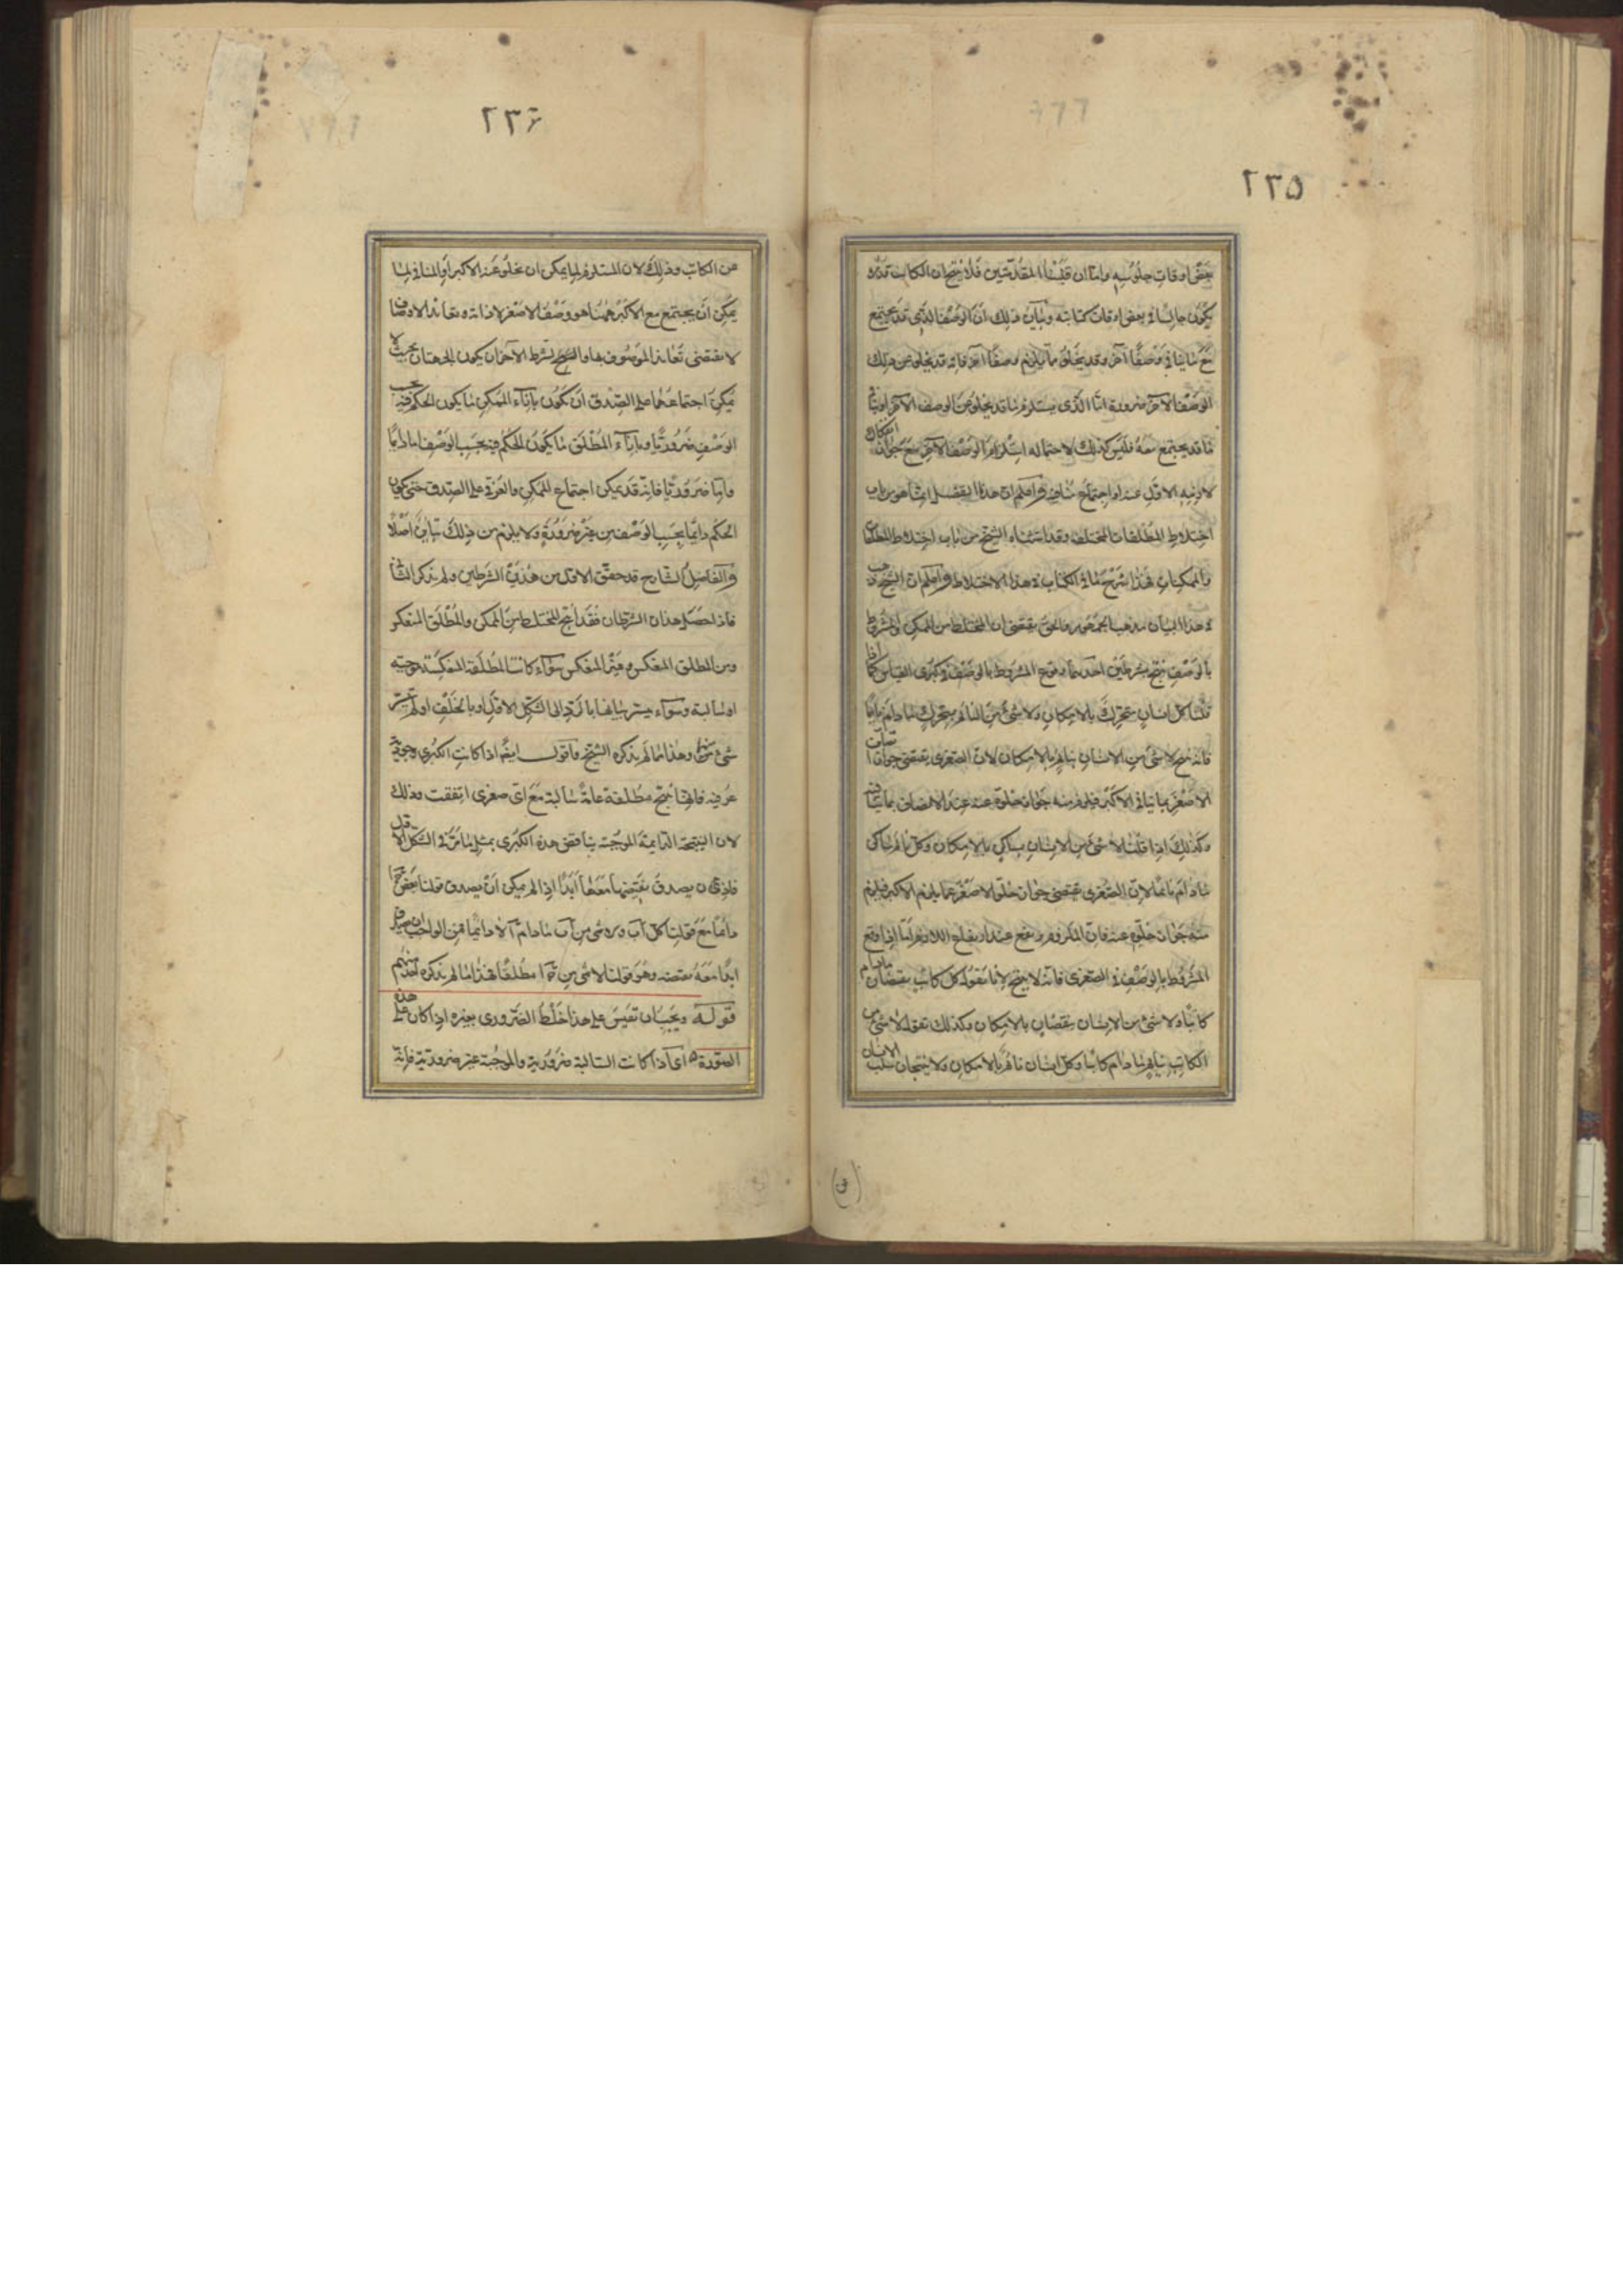 ٢٣٥
بعض اوقات جلوسه واما ان قلبنا المقدمتين فلا ينتج ان الكاتب قد
يكون جالسا في بعض اوقات كتابته وبيان ذلك ان الوصف الذي قد يجتمع
مع ما ينافي وصفا آخر وقد يخلو مما يلزم وصفا آخر فانه قد يخلو من ذلك
الوصف الآخر ضرورة اما الذي يستلزم ما قد يخلو عن الوصف الآخر او ينافي
ما قد يجتمع معه فليس كذلك لاحتمال استلزام الوصف الآخر مع جواز انفكاك
الاول عنه او اجتماع منافيه واعلم ان هذا التفصيل انما هو من باب
اختلاط المطلقات المختلفة وقد استثناه الشيخ من باب اختلاط المطلقات
والممكنات فهذا شرح ما في الكتاب في هذا الاختلاط واعلم ان الشيخ ذهب
في هذا البيان مذهب الجمهور والحق يقتضي ان المختلط من الممكن والمشروط
بالوصف ينتج بشرطين احدهما وقوع المشروط بالوصف في كبرى القياس كما اذا
قلنا كل انسان متحرك بالامكان ولا شئ من النائم بمتحرك ما دام نائما
فانه ينتج لا شئ من الانسان بنائم بالامكان لان الصغرى يقتضي جواز اتصاف
الاصغر بما ينافي الاكبر فيلزم منه جواز خلوه عنه عند الاتصاف بما ينافيه
وكذلك اذا قلنا لا شئ من الانسان بساكن بالامكان وكل نائم ساكن
ما دام نائما لان الصغرى يقتضي جواز خلو الاصغر عما يلزم الاكبر فيلزم
منه جواز خلوه عنه فان الملزوم يرتفع عند ارتفاع اللازم اما اذا وقع
المشروط بالوصف في الصغرى فانه لا ينتج لانا نقول كل كاتب يقظان ما دام
كاتبا ولا شئ من الانسان بيقظان بالامكان وكذلك نقول لا شئ من
الكاتب بنائم ما دام كاتبا وكل انسان نائم بالامكان ولا ينتجان سلب الانسان
٢٣٦
عن الكاتب وذلك لان المستلزم لما يمكن ان يخلو عنه الاكبر او المنافي لما
يمكن ان يجتمع مع الاكبر هنا هو وصف الاصغر لا ذاته وتعاند الاوصاف
لا يقتضي تعاند الموصوف بها والشرط الآخر ان يكون الجهتان بحيث لا
يمكن اجتماعهما على الصدق ان يكون بازاء الممكن ما يكون الحكم فيه بحسب
الوصف ضروريا وبازاء المطلق ما يكون الحكم فيه بحسب الوصف اما دائما
واما ضروريا فانه قد يمكن اجتماع الممكن والعرفي على الصدق حتى يكون
الحكم دائما بحسب الوصف من غير ضرورة ولا يلزم من ذلك تباين اصلا
والفاضل الشارح قد حقق الاول من هذين الشرطين ولم يذكر الثاني
فاذا حصل هذان الشرطان فقد انتج المختلط من الممكن والمطلق المنعكس
ومن المطلق المنعكس وغير المنعكس سواء كانت المطلقة المنعكسة موجبة
او سالبة وسواء بيانها بالرد الى الشكل الاول او بالخلف او لم
شئ منها وهذا مما لم يذكره الشيخ واقول ايضا اذا كانت الكبرى موجبة
عرفية فانها ينتج مطلقة عامة سالبة مع اي صغرى اتفقت وذلك
لان النتيجة الدائمة الموجبة يناقض هذه الكبرى بمثل ما مر في الشكل الاول
فاذن يصدق نقيضها معها ابدا اذا لم يمكن ان يصدق قولنا بعض ج ا
دائما مع قولنا كل آ ب ما دام آ لا دائما فمن الواجب ان يصدق
ابدا معه نقيضه وهو قولنا لا شئ من ج ا مطلقا فهذا مما لم يذكره احد منهم
قوله ويجب ان تقيس على هذا خلط الضرورى بغيره اذا كان على هذه
الصورة ه اى اذا كانت السالبة ضرورية والموجبة غير ضرورية فانه